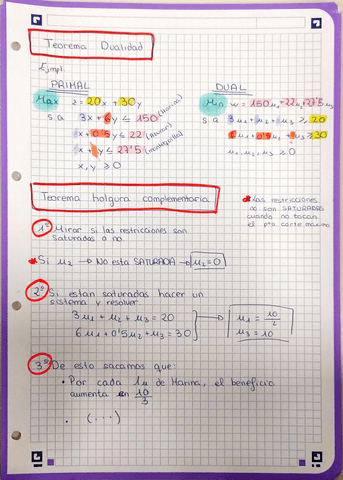 Teorema Dualidad
Ejmpl.
PRIMAL
Max z = 20x + 30y
s.a 3x + 6y ≤ 150 (Harina)
x + 0'5y ≤ 22 (Azucar)
x + y ≤ 27'5 (mantequilla)
x, y ≥ 0
DUAL
Min w = 150u₁ + 22u₂ + 27'5u₃
s.a 3u₁ + u₂ + u₃ ≥ 20
6u₁ + 0'5u₂ + u₃ ≥ 30
u₁, u₂, u₃ ≥ 0
Teorema holgura complementaria
* Las restricciones
no son SATURADAS
cuando no tocan
el pto corte maximo
1º Mirar si las restricciones son
saturadas o no.
* Si u₂ → No esta SATURADA → u₂ = 0
2º Si estan saturadas hacer un
sistema y resolver
3u₁ + u₂ + u₃ = 20
6u₁ + 0'5u₂ + u₃ = 30
u₁ = 10
u₃ = 10
3º De esto sacamos que:
• Por cada 1u de Harina, el beneficio
aumenta en 10/3
• (...)